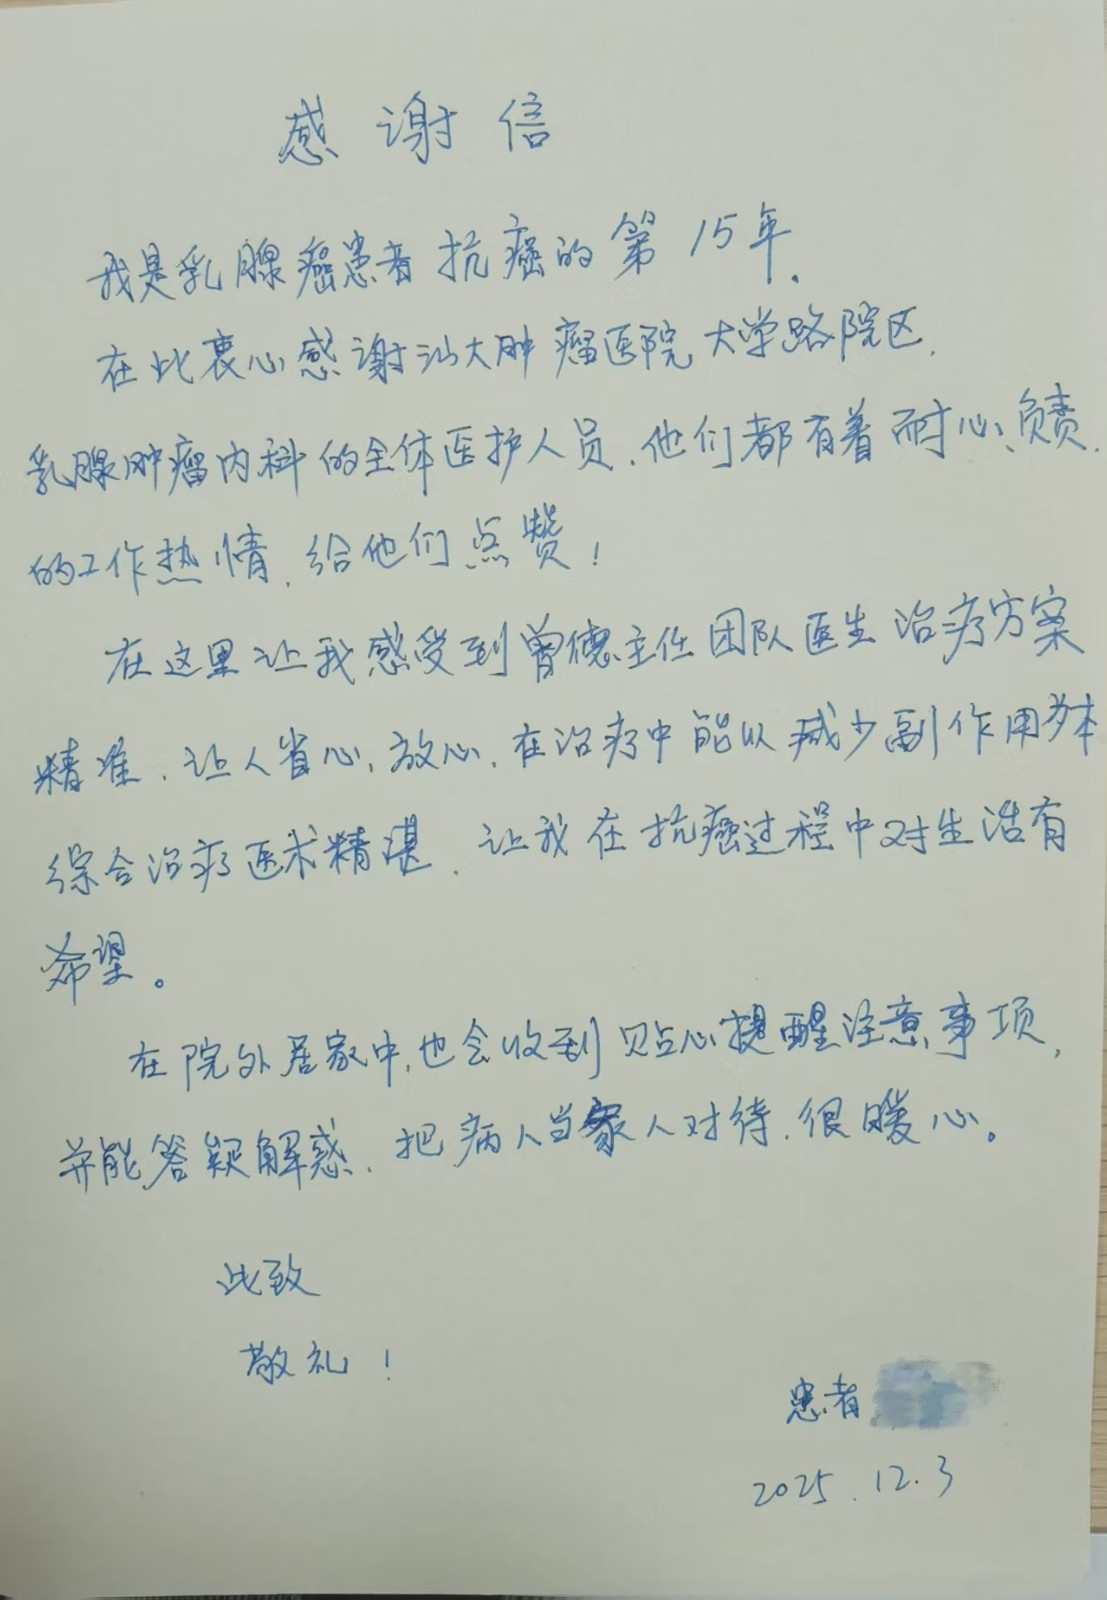 感谢信
我是乳腺癌患者抗癌的第15年.
在此衷心感谢汕大肿瘤医院大学路院区.
乳腺肿瘤内科的全体医护人员.他们都有着耐心、负责.
的工作热情.给他们点赞!
在这里让我感受到曾德主任团队医生治疗方案
精准.让人省心,放心.在治疗中能以减少副作用为本
综合治疗医术精湛.让我在抗癌过程中对生活有
希望。
在院外居家中,也会收到贴心提醒注意事项,
并能答疑解惑.把病人当家人对待.很暖心。
此致
敬礼!
患者
2025.12.3